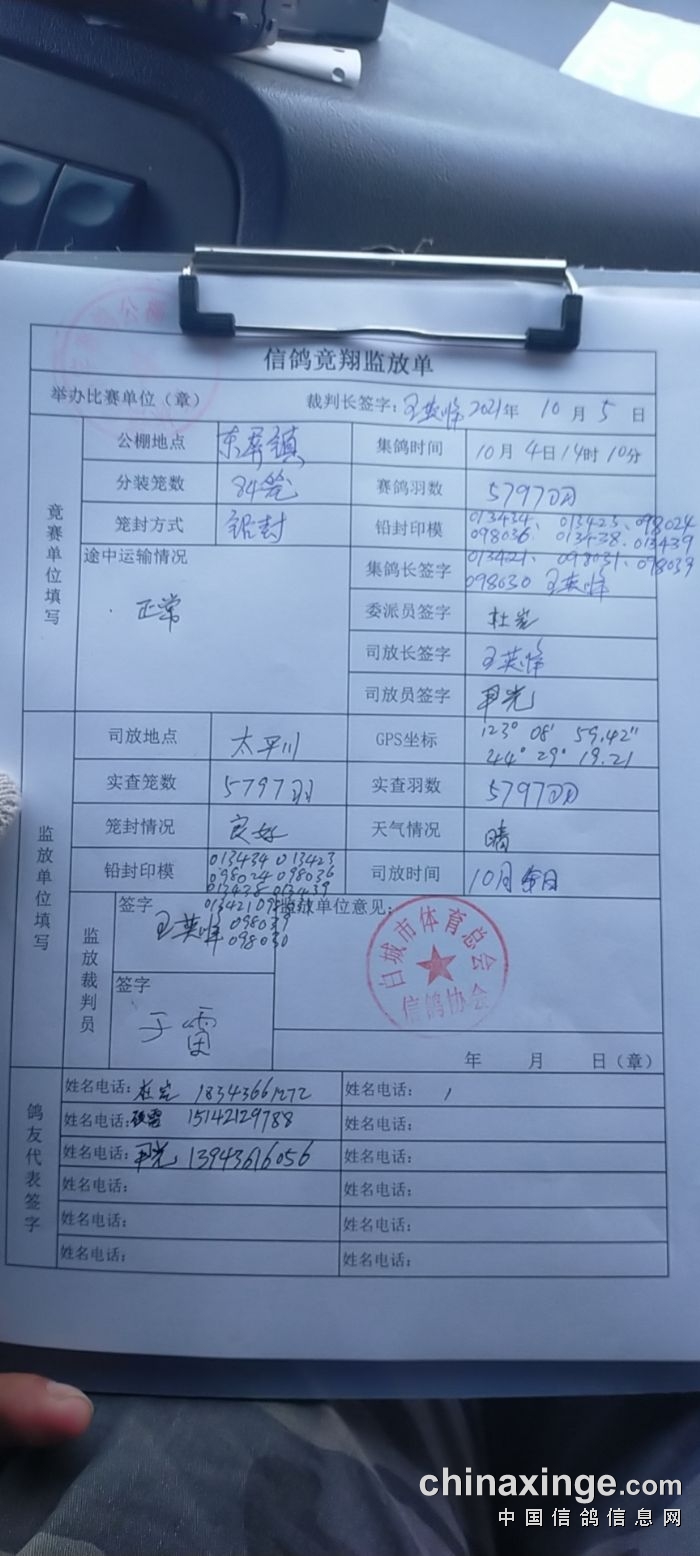 信鸽竞翔监放单
举办比赛单位（章） 裁判长签字：王英峰 2021年 10月 5日
竞赛单位填写
公棚地点 东屏镇 集鸽时间 10月4日14时10分
分装笼数 84笼 赛鸽羽数 5797羽
笼封方式 铅封 铅封印模 013434、013423、098024
098036 013438.013439
013421、098031、098039
098030
途中运输情况 集鸽长签字 王英峰
正常 委派员签字
司放长签字 王英峰
司放员签字
监放单位填写
司放地点 太平川 GPS坐标 123° 08' 59.42"
44° 29° 19.21
实查笼数 5797羽 实查羽数 5797羽
笼封情况 良好 天气情况 晴
铅封印模 013434 013423
098024 098036
013438 013439
013421
098039
098030
司放时间 10月
监放裁判员
签字 王英峰 监放单位意见：
白城市体育总会
信鸽协会
签字 于雷
年 月 日（章）
鸽友代表签字
姓名电话： 18343661272 姓名电话：
姓名电话： 15142129788 姓名电话：
姓名电话： 13943616056 姓名电话：
姓名电话： 姓名电话：
姓名电话： 姓名电话：
姓名电话： 姓名电话：
chinaxinge.com
中国信鸽信息网